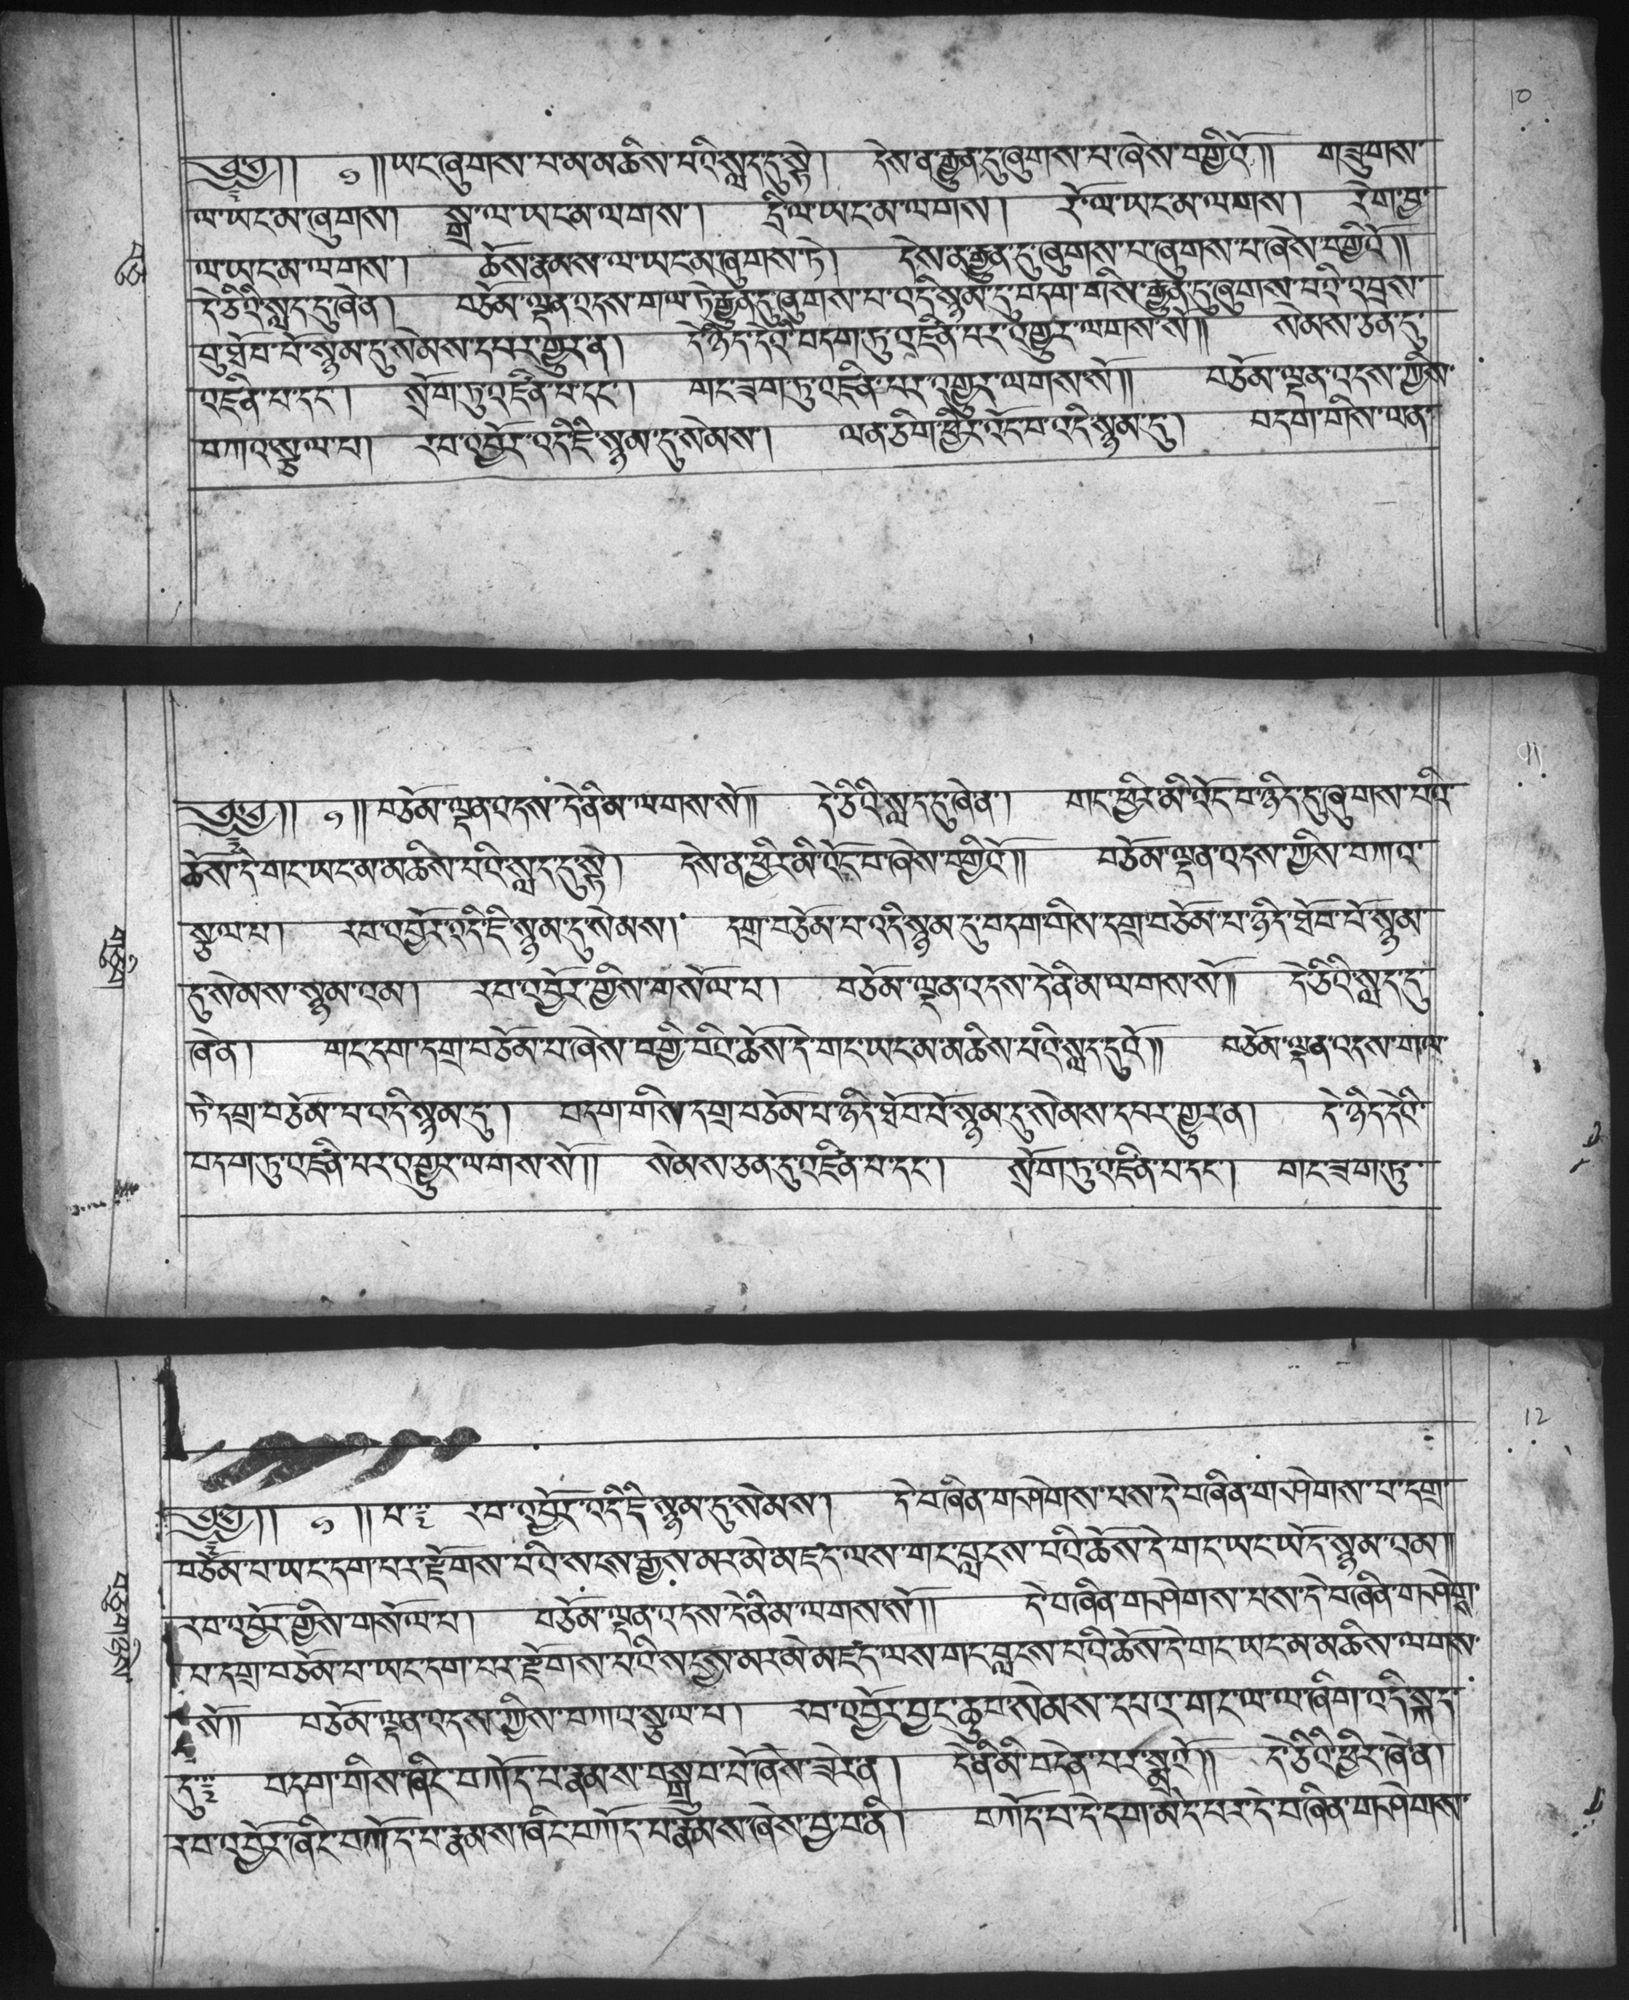 10
༄༅།། ༡ །།ཡང་ཞུགས་པ་མ་མཆིས་པའི་སླད་དུ་སྟེ། དེས་ན་རྒྱུན་དུ་ཞུགས་པ་ཞེས་བགྱིའོ།། གཟུགས་
ལ་ཡང་མ་ཞུགས། སྒྲ་ལ་ཡང་མ་ལགས། དྲི་ལ་ཡང་མ་ལགས། རོ་ལ་ཡང་མ་ལགས། རེག་བྱ་
ལ་ཡང་མ་ལགས། ཆོས་རྣམས་ལ་ཡང་མ་ཞུགས་ཏེ། དེས་ན་རྒྱུན་དུ་ཞུགས་པ་ཞུགས་པ་ཞེས་བགྱིའོ།།
དེ་ཅིའི་སླད་དུ་ཞེ་ན། བཅོམ་ལྡན་འདས་གལ་ཏེ་རྒྱུན་དུ་ཞུགས་པ་འདི་སྙམ་དུ་བདག་གིས་རྒྱུན་དུ་ཞུགས་པའི་འབྲས་
བུ་ཐོབ་པོ་སྙམ་དུ་སེམས་དཔར་གྱུར་ན། དེ་ཉིད་དེའི་བདག་ཏུ་འཛིན་པར་འགྱུར་ལགས་སོ།། སེམས་ཅན་དུ་
འཛིན་པ་དང། སྲོག་ཏུ་འཛིན་པ་དང། གང་ཟག་ཏུ་འཛིན་པར་འགྱུར་ལགས་སོ།། བཅོམ་ལྡན་འདས་ཀྱིས་
བཀའ་སྩལ་པ། རབ་འབྱོར་འདི་ཇི་སྙམ་དུ་སེམས། ལན་ཅིག་ཕྱིར་འོང་བ་འདི་སྙམ་དུ། བདག་གིས་ལན་
11
༄༅།། ༡ །།བཅོམ་ལྡན་འདས་དེ་ནི་མ་ལགས་སོ།། དེ་ཅིའི་སླད་དུ་ཞེ་ན། གང་ཕྱིར་མི་འོང་བ་ཉིད་དུ་ཞུགས་པའི་
ཆོས་དེ་གང་ཡང་མ་མཆིས་པའི་སླད་དུ་སྟེ། དེས་ན་ཕྱིར་མི་འོང་བ་ཞེས་བགྱིའོ།། བཅོམ་ལྡན་འདས་ཀྱིས་བཀའ་
སྩལ་པ། རབ་འབྱོར་འདི་ཇི་སྙམ་དུ་སེམས། དགྲ་བཅོམ་པ་འདི་སྙམ་དུ་བདག་གིས་དགྲ་བཅོམ་པ་ཉིད་ཐོབ་པོ་སྙམ་
དུ་སེམས་སྙམ་འམ། རབ་འབྱོར་གྱིས་གསོལ་པ། བཅོམ་ལྡན་འདས་དེ་ནི་མ་ལགས་སོ།། དེ་ཅིའི་སླད་དུ་
ཞེ་ན། གང་དག་དགྲ་བཅོམ་པ་ཞེས་བགྱི་བའི་ཆོས་དེ་གང་ཡང་མ་མཆིས་པའི་སླད་དུའོ།། བཅོམ་ལྡན་འདས་གལ་
ཏེ་དགྲ་བཅོམ་པ་འདི་སྙམ་དུ། བདག་གིས་དགྲ་བཅོམ་པ་ཉིད་ཐོབ་པོ་སྙམ་དུ་སེམས་དཔར་གྱུར་ན། དེ་ཉིད་དེའི་
བདག་ཏུ་འཛིན་པར་འགྱུར་ལགས་སོ།། སེམས་ཅན་དུ་འཛིན་པ་དང། སྲོག་ཏུ་འཛིན་པ་དང། གང་ཟག་ཏུ་
12
༄༅།། ༡ །།པ༔ རབ་འབྱོར་འདི་ཇི་སྙམ་དུ་སེམས། དེ་བཞིན་གཤེགས་པས་དེ་བཞིན་གཤེགས་པ་དགྲ་
བཅོམ་པ་ཡང་དག་པར་རྫོགས་པའི་སངས་རྒྱས་མར་མེ་མཛད་ལས་གང་བླངས་པའི་ཆོས་དེ་གང་ཡང་ཡོད་སྙམ་འམ།།
རབ་འབྱོར་གྱིས་གསོལ་པ། བཅོམ་ལྡན་འདས་དེ་ནི་མ་ལགས་སོ།། དེ་བཞིན་གཤེགས་པས་དེ་བཞིན་གཤེགས་
པ་དགྲ་བཅོམ་པ་ཡང་དག་པར་རྫོགས་པའི་སངྱས་མར་མེ་མཛད་ལས་གང་བླངས་པའི་ཆོས་དེ་གང་ཡང་མ་མཆིས་ལགས་
སོ།། བཅོམ་ལྡན་འདས་ཀྱིས་བཀའ་སྩལ་པ། རབ་འབྱོར་བྱང་ཆུབ་སེམས་དཔའ་གང་ལ་ལ་ཞིག་འདི་སྐད་
དུ༔ བདག་གིས་ཞིང་བཀོད་པ་རྣམས་བསྒྲུབ་པོ་ཞེས་ཟེར་ན། དེ་ནི་མི་བདེན་པར་སྨྲའོ།། དེ་ཅིའི་ཕྱིར་ཞེ་ན།
རབ་འབྱོར་ཞིང་བཀོད་པ་རྣམས་ཞིང་བཀོད་པ་རྣམས་ཞེས་བྱ་བ་ནི། བཀོད་པ་དེ་དག་མེད་པར་དེ་བཞིན་གཤེགས་